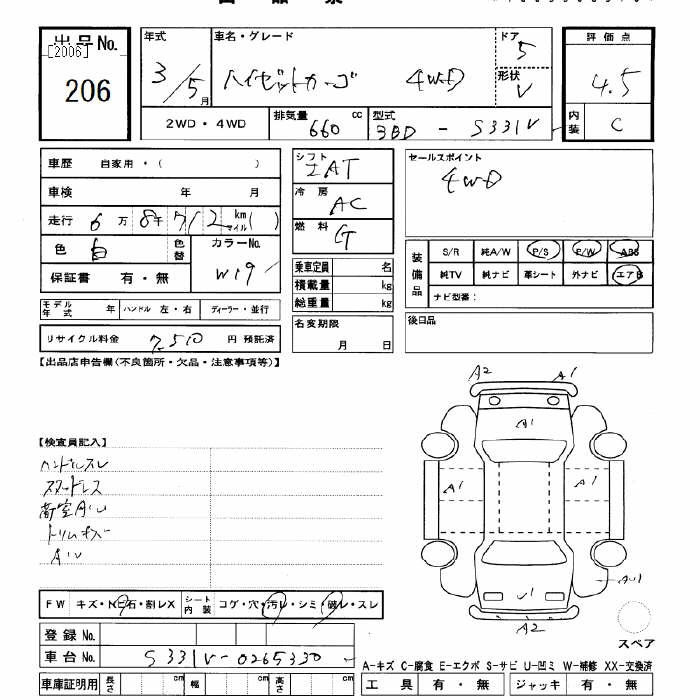 出品No.
[2006]
206
年式
3/5月
車名・グレード
ハイゼットカーゴ 4WD
ドア
5
形状
V
評価点
4.5
内装
C
2WD・4WD
排気量
660 cc
型式
3BD - S331V
車歴 自家用・( )
車検 年 月
走行 6万8千712km(マイル)
色 白 色替
カラーNo.
W19
保証書 有・無
モデル年式 年 ハンドル 左・右 ディーラー・並行
リサイクル料金 7,510 円 預託済
シフト
IAT
冷房
AC
燃料
G
乗車定員 名
積載量 kg
総重量 kg
名変期限
月 日
セールスポイント
4WD
装備品
S/R 純A/W P/S P/W ABS
純TV 純ナビ 革シート 外ナビ エアB
ナビ型番：
後日品
【出品店申告欄(不良箇所・欠品・注意事項等)】
【検査員記入】
ハンドルスレ
スタッドレス
荷室AU
A2
A1
A1
A1
A1
A2
スペア
FW キズ・ 石・割レX シート内装 コゲ・穴・汚レ・シミ・破レ・スレ
登録No.
車台No. S331V-0265330
車庫証明用 長さ cm 幅 cm 高さ cm
A-キズ C-腐食 E-エクボ S-サビ U-凹ミ W-補修 XX-交換済
工具 有・無 ジャッキ 有・無